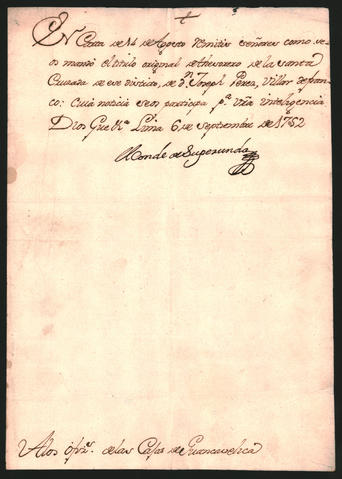 En Carta de 14 de Agosto remitis señores como se
os mandó el titulo original de thesorero de la santa
Cruzada de ese distrito, de Dn. Joseph Perez, Villar de fran
co: cuia noticia se os participa pa. vra inteligencia
Dios Gue Lima 6 de septiembre de 1752
El Conde de Superunda
A los ofizs. de las Casas de Guancavelica